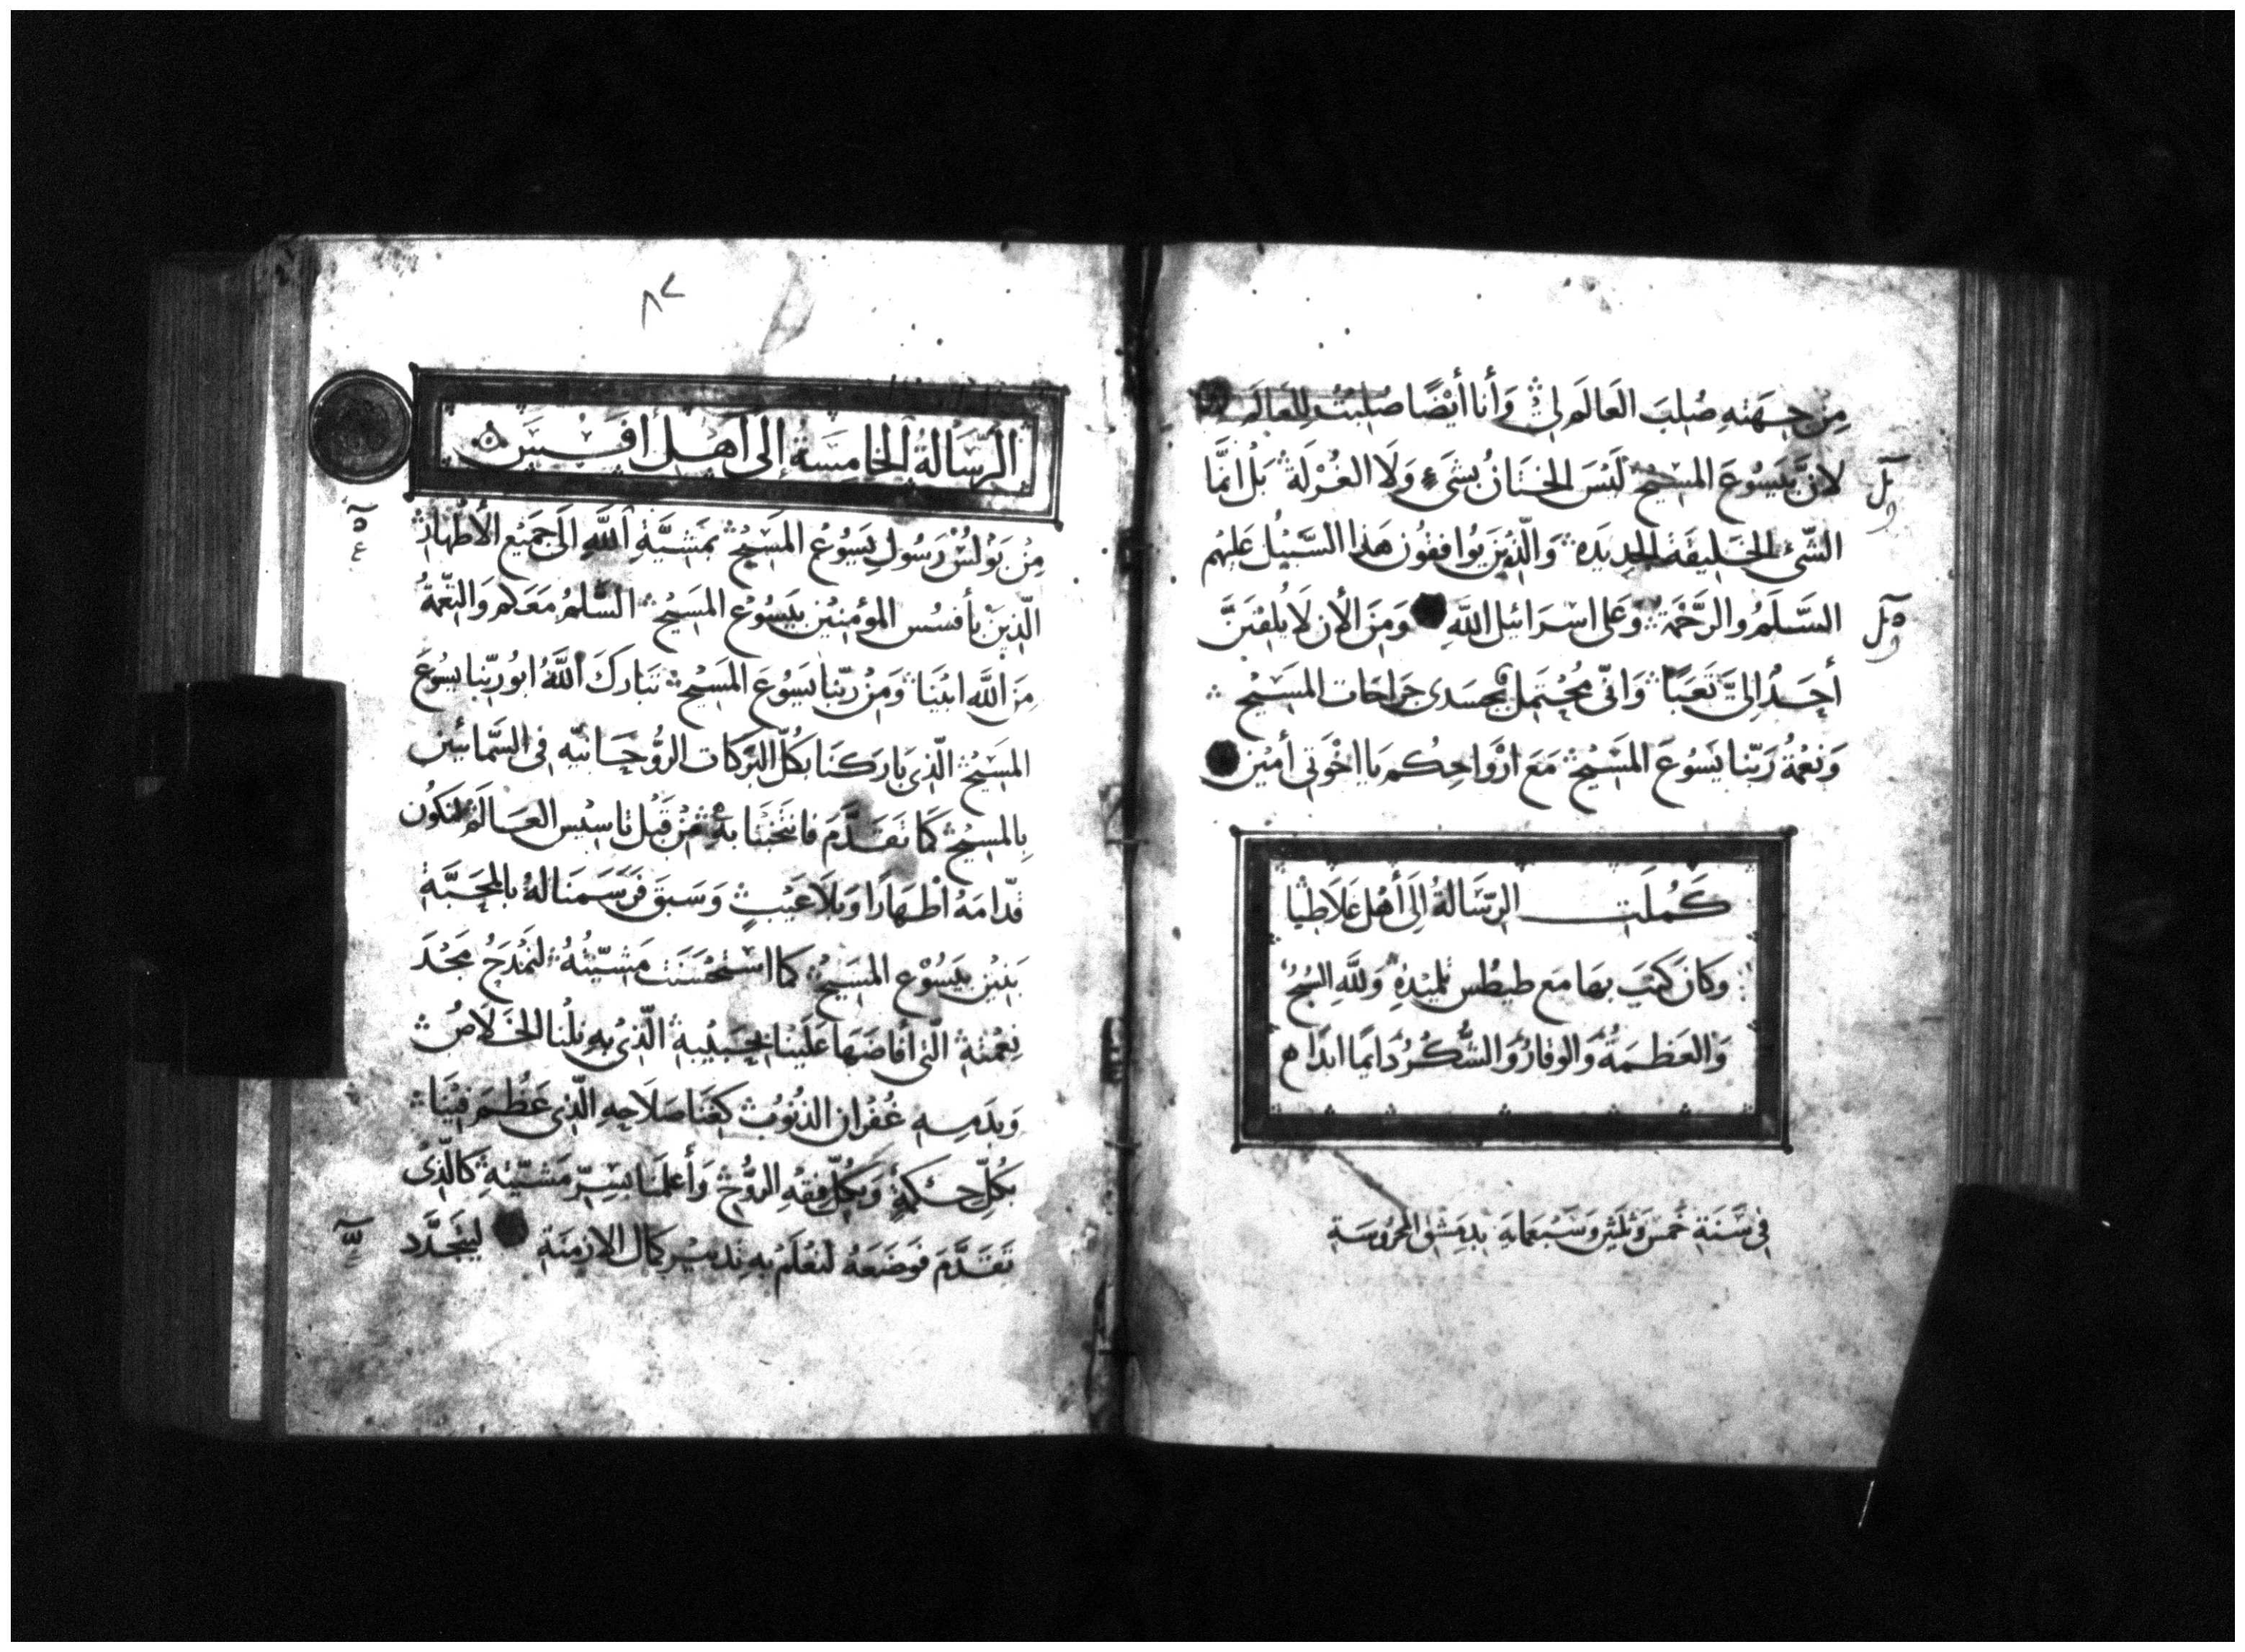 مِن جِهَتِهِ صُلِبَ العَالَم لِي وَأَنا أَيْضًا صُلِبْتُ لِلعَالَم
لانَّ بِيَسُوعَ المسِيح لَيْسَ الخِتَانُ بِشَيءٍ وَلَا الغُرْلَة بَلْ انَّمَا
الشَّيْ الخَلِيقَة الجدِيَدِه وَالَّذِينَ يُوافِقُون هَذا السَّبِيْل عَليْهم
السَّلَمُ والرَّحْمَة وَعَلى اسْرَائِيل اللَّهِ وَمِنَ الأن لَا يُلقِيَنَّ
أحَدٌ اِلَيَّ تَعَبًا وَانِّي مُحْتَمِل بجسَدى جِرَاحَات المسِيْح
وَنِعْمَةُ رَبِّنا يَسُوعَ المَسِيْح مَعَ ارْوَاحِكُم يَا اخْوَتِي أمِيْن
كَمُلَت الرِّسَالةُ اِلَى أَهْل غَلَاطيَا
وَكَانَ كَتَبَ بهَا مَع طيطُس تِلميْذِهِ وَللَّهِ السُبحُ
وَالعَظَمَةُ وَالوقارُ وَالشُّكْرُ دَايمًا ابَدًا
فِي سَنَةِ خَمسٍ وَثلثِين وَسَبْعمايَه بدِمَشْق المحْرُوسَةِ
٨٧
الرِّسَالَةُ الخامِسَةُ إلَى أَهْلِ أفَسِسَ
مِنْ بَوْلُسْ رَسُولِ يَسُوْعَ المَسِيْح بمَشِيَّةِ اللَّهِ الَى جَمِيْعِ الأطْهَار
الَّذِيَنْ بأفسُس المؤمِنِيْن بِيَسُوْعَ المَسِيْح السَّلمُ مَعَكم وَالنِّعْمَةُ
مِنَ اللَّه ابِيْنَا وَمِنْ رَبِّنا يَسُوْعَ المَسِيْح تَبَارَكَ اللَّهُ ابُو رَبِّنا يسُوْعَ
المَسِيْح الَّذِي بَارَكنَا بكُلّ البَّرَكَات الرُّوْحَانيَّه في السَّمائيِن
بِالمسِيْح كَمَا تَقَدَّمَ فانتَخَبَنَا بهِ مِنْ قَبْل تاسِيْس العَالَم لِنكُون
قدَّامَهُ اطْهَارًا وَبلَا عَيْبٍ وَسَبَق فَرَسَمَنا لهُ بالمحَبَّةِ
بَنِيْن بيَسُوْعَ المَسِيْح كما استَحْسَنَت مَشِيَّتُهُ لِنَمْدَحُ مَجْدَ
نِعْمَتِهِ الَّتي أفَاضَهَا عَلَيْنا بحَبِيْبِهِ الَّذِيْ بِهِ نِلْنا الخَلَاصُ
وَبدَمِهِ غُفْرَان الذنُوْبِ كغِنَا صَلَاحِهِ الَّذِي عَظُمَ فيْنَا
بكُلِّ حِكمَةٍ وَبكُلّ فِقْهِ الرُّوْح وَأعلَمنَا بسِرّ مَشِيَّتِهِ كَالَّذِيْ
تَقَدَّمَ فوَضَعَهُ لنَعْلَم بِهِ تدبيْر كمَال الازمنَةِ لِيتَجَدَّد